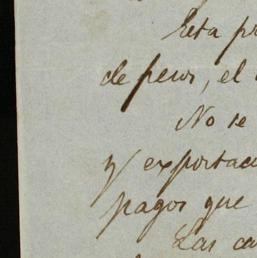 Esta pr
de pesos, el
No se
y exportac
pagos que
Las ca